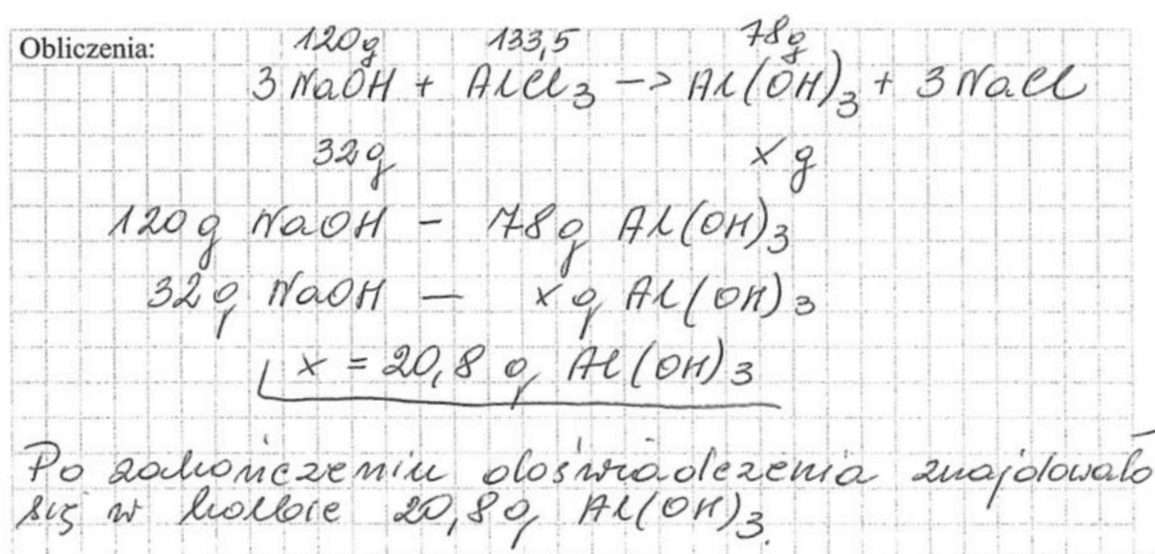 Obliczenia:
120g 133,5 78g
3 NaOH + AlCl3 -> Al(OH)3 + 3 NaCl
32g x g
120 g NaOH - 78g Al(OH)3
32 g NaOH - x g Al(OH)3
x = 20,8 g Al(OH)3
Po zakończeniu doświadczenia znajdowało
się w kolbie 20,8g Al(OH)3.